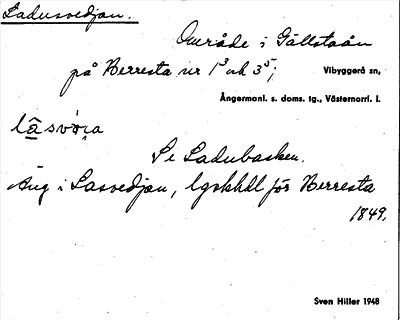 Ladusvedjan.
Område i Gällstaån
på Berresta nr 1³ och 3⁵;
Vibyggerå sn,
Ångermanl. s. doms. tg., Västernorrl. l.
Se Ladubacken.
Äng i Lasvedjan, lgskhdl för Berresta
1849.
Sven Hiller 1948